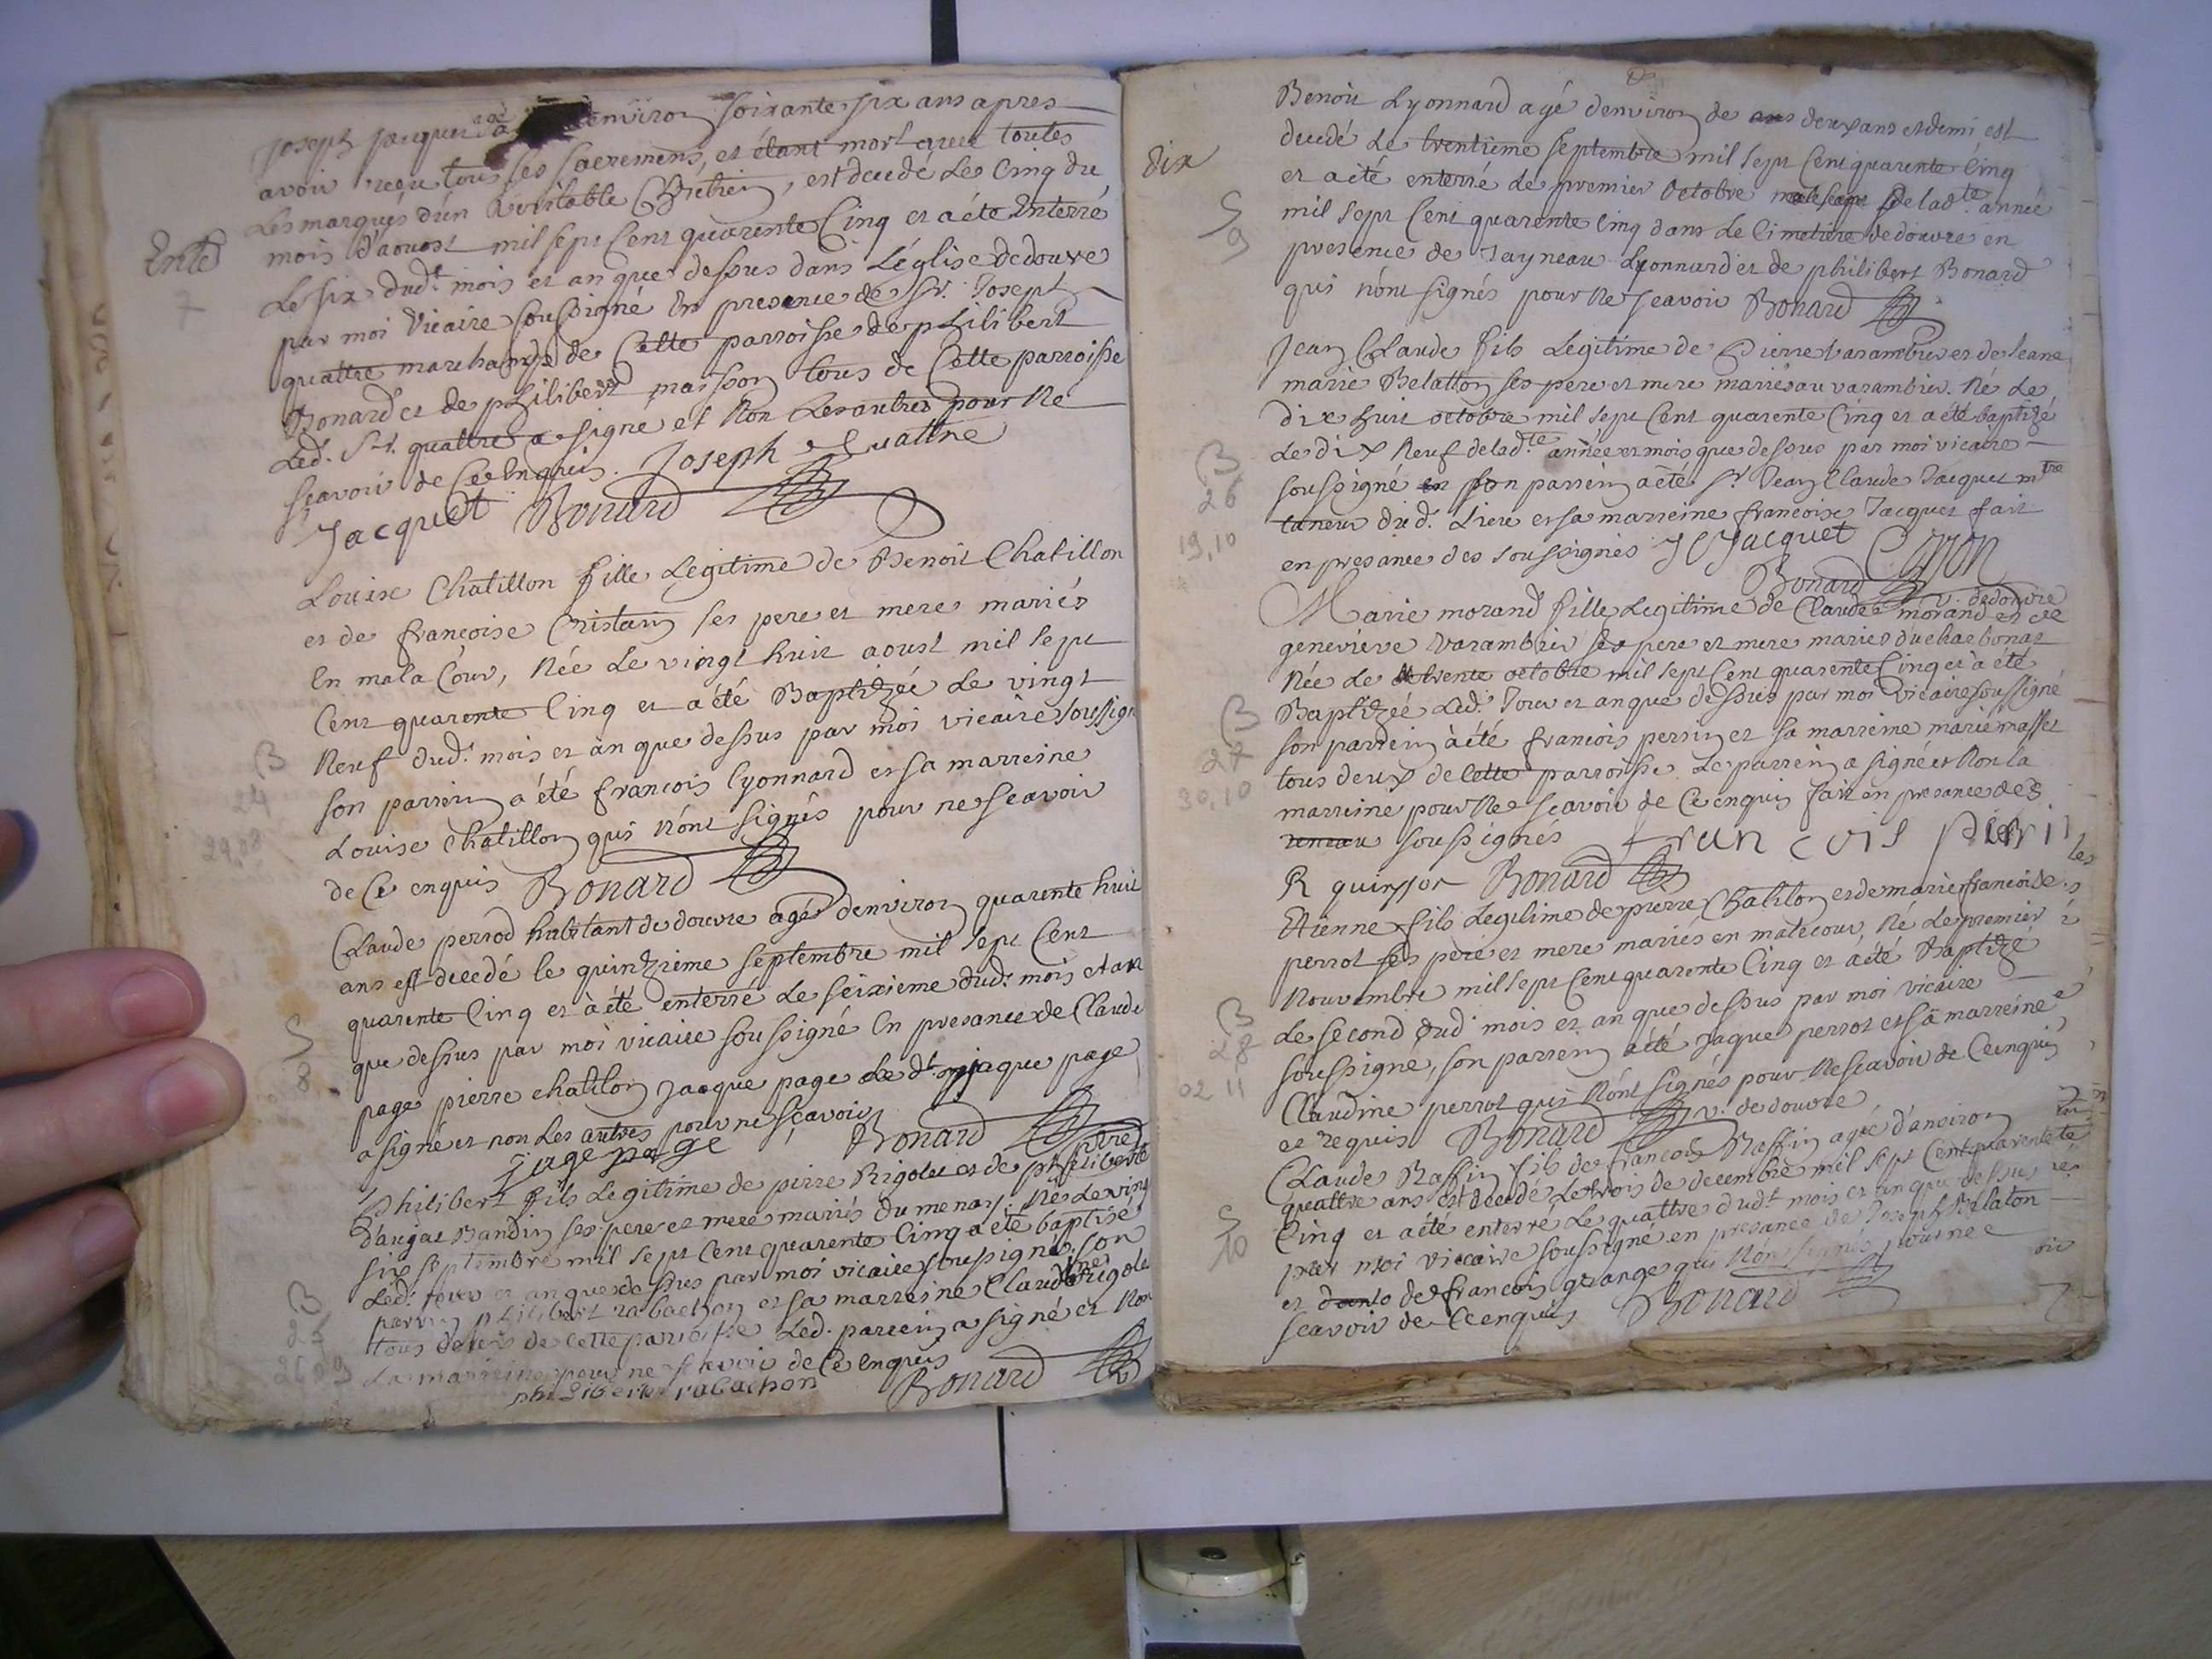 Joseph Jacquet agé denviron soixante six ans apres
avoir reçu tous ses sacremens, et étant mort avec toutes
Les marques d'un veritable Chrétien, est decedé Le cinq du
mois d'aoust mil sept Cent quarente Cinq et a été Enterré
Le six dud.t mois et an que dessus dans L'église de douvre
par moi Vicaire soussigné En presence de Sr. Joseph
quattre marchand de Cette parroisse de philibert
Bonard et de philibert maisson tous de Cette parroisse
Led. Sr. quattre a signé et Non Les autres pour Ne
scavoir de Ce Enquis. Joseph Quattre
Jacquet Bonard
Louise Chatillon fille Legitime de Benoit Chatillon
et de françoise Cristain ses pere et mere mariés
En mala Cour, Née Le vingt huit aoust mil sept
Cent quarente Cinq et a été Baptizée Le vingt
Neuf dud.t mois et àn que dessus par moi vicaire soussign
son parrein a été francois lyonnard et sa marreine
Louise Chatillon qui n'ont signés pour ne scavoir
de Ce enquis Bonard
Claude perrod habitant de douvre agé denviron quarente huit
ans est decedé le quinzieme septembre mil sept Cent
quarente Cinq et à été enterré Le seixieme dud.t mois et an
que dessus par moi vicaire soussigné En presance de Claude
page pierre chatilon jacque page Le d.t jaque page
a signé et non Les autres pour ne sçavoir
jaqe page Bonard
Philibert fils Legitime de pierre Rigolet et de philiberte
Baudin ses pere et mere mariés du menay. Né Le ving
six septembre mil sept Cent quarente Cinq a été baptisé
Led. jour et an que dessus par moi vicaire soussigné son
parrein philibert rabachon et sa marreine Claudine rigole
tous deux de Cette parroisse Led. parrein a signé et Non
La marreine pour ne scavoir de Ce enquis
philibert rabachon Bonard
Enter
7
B
24
29,08
S
8
B
25
26 09
Benoit Lyonnard agé denviron de ans deux ans et demi est
decedé Le trentieme septembre mil sept Cent quarente Cinq
et a été enterré Le premier Octobre de lad.te année
mil sept Cent quarente Cinq dans Le Cimetiere de douvre en
presence de Lyonnard et de philibert Bonard
qui n'ont signés pour Ne scavoir Bonard
Jean Claude fils Legitime de Pierre Varambier et de Jeane
marie Belatton ses pere et mere mariés au varambier. Né Le
dix huit octobre mil sept Cent quarente Cinq et a été baptizé
Le dix Neuf de lad.te année et mois que dessus par moi vicaire
soussigné en son parrein a été Sr. Jean Claude Jacquet m.tre
taneur dud. Lieu et sa marreine francoise Jacquet fait
en presance des soussignés J C Jacquet
Bonard v. de douvre
Marie morand fille Legitime de Claude morand et de
genevieve Varambier ses pere et mere mariés du charbonat
Née Le trente octobre mil sept Cent quarente Cinq et à été
Baptizée Led. Jour et an que dessus par moi Vicaire soussigné
son parrein à été francois perrin et sa marreine marie masset
tous deux de Cette parroisse. Le parrein a signé et Non La
marreine pour Ne scavoir de Ce enquis fait en presance des
soussignés fran cois pierri
R quinsson Bonard
Etienne fils Legitime de pierre Chatilon et de marie francoise
perrot ses pere et mere mariés en malecour, Né Le premier
Nouvembre mil sept Cent quarente Cinq et a été Baptizé
Le second dud. mois et an que dessus par moi vicaire
soussigné, son parrein a été Jaque perrot et sa marreine
Claudine perrot qui N'ont signés pour Ne scavoir de Ce enquis
et requis Bonard v. de douvre
Claude Raffin fils de francois Raffin agé d'anviron
quattre ans est decedé Le trois de decembre mil sept Cent quarente
Cinq et a été enterré Le quattre dud.t mois et an que dessus
par moi viccaire soussigné en presance de Joseph Belaton
et de francois grange qui N'ont signés pour ne
scavoir de Ce enquis Bonard
Dix
S
9
B
26
19,10
B
27
30,10
B
28
02 11
S
10